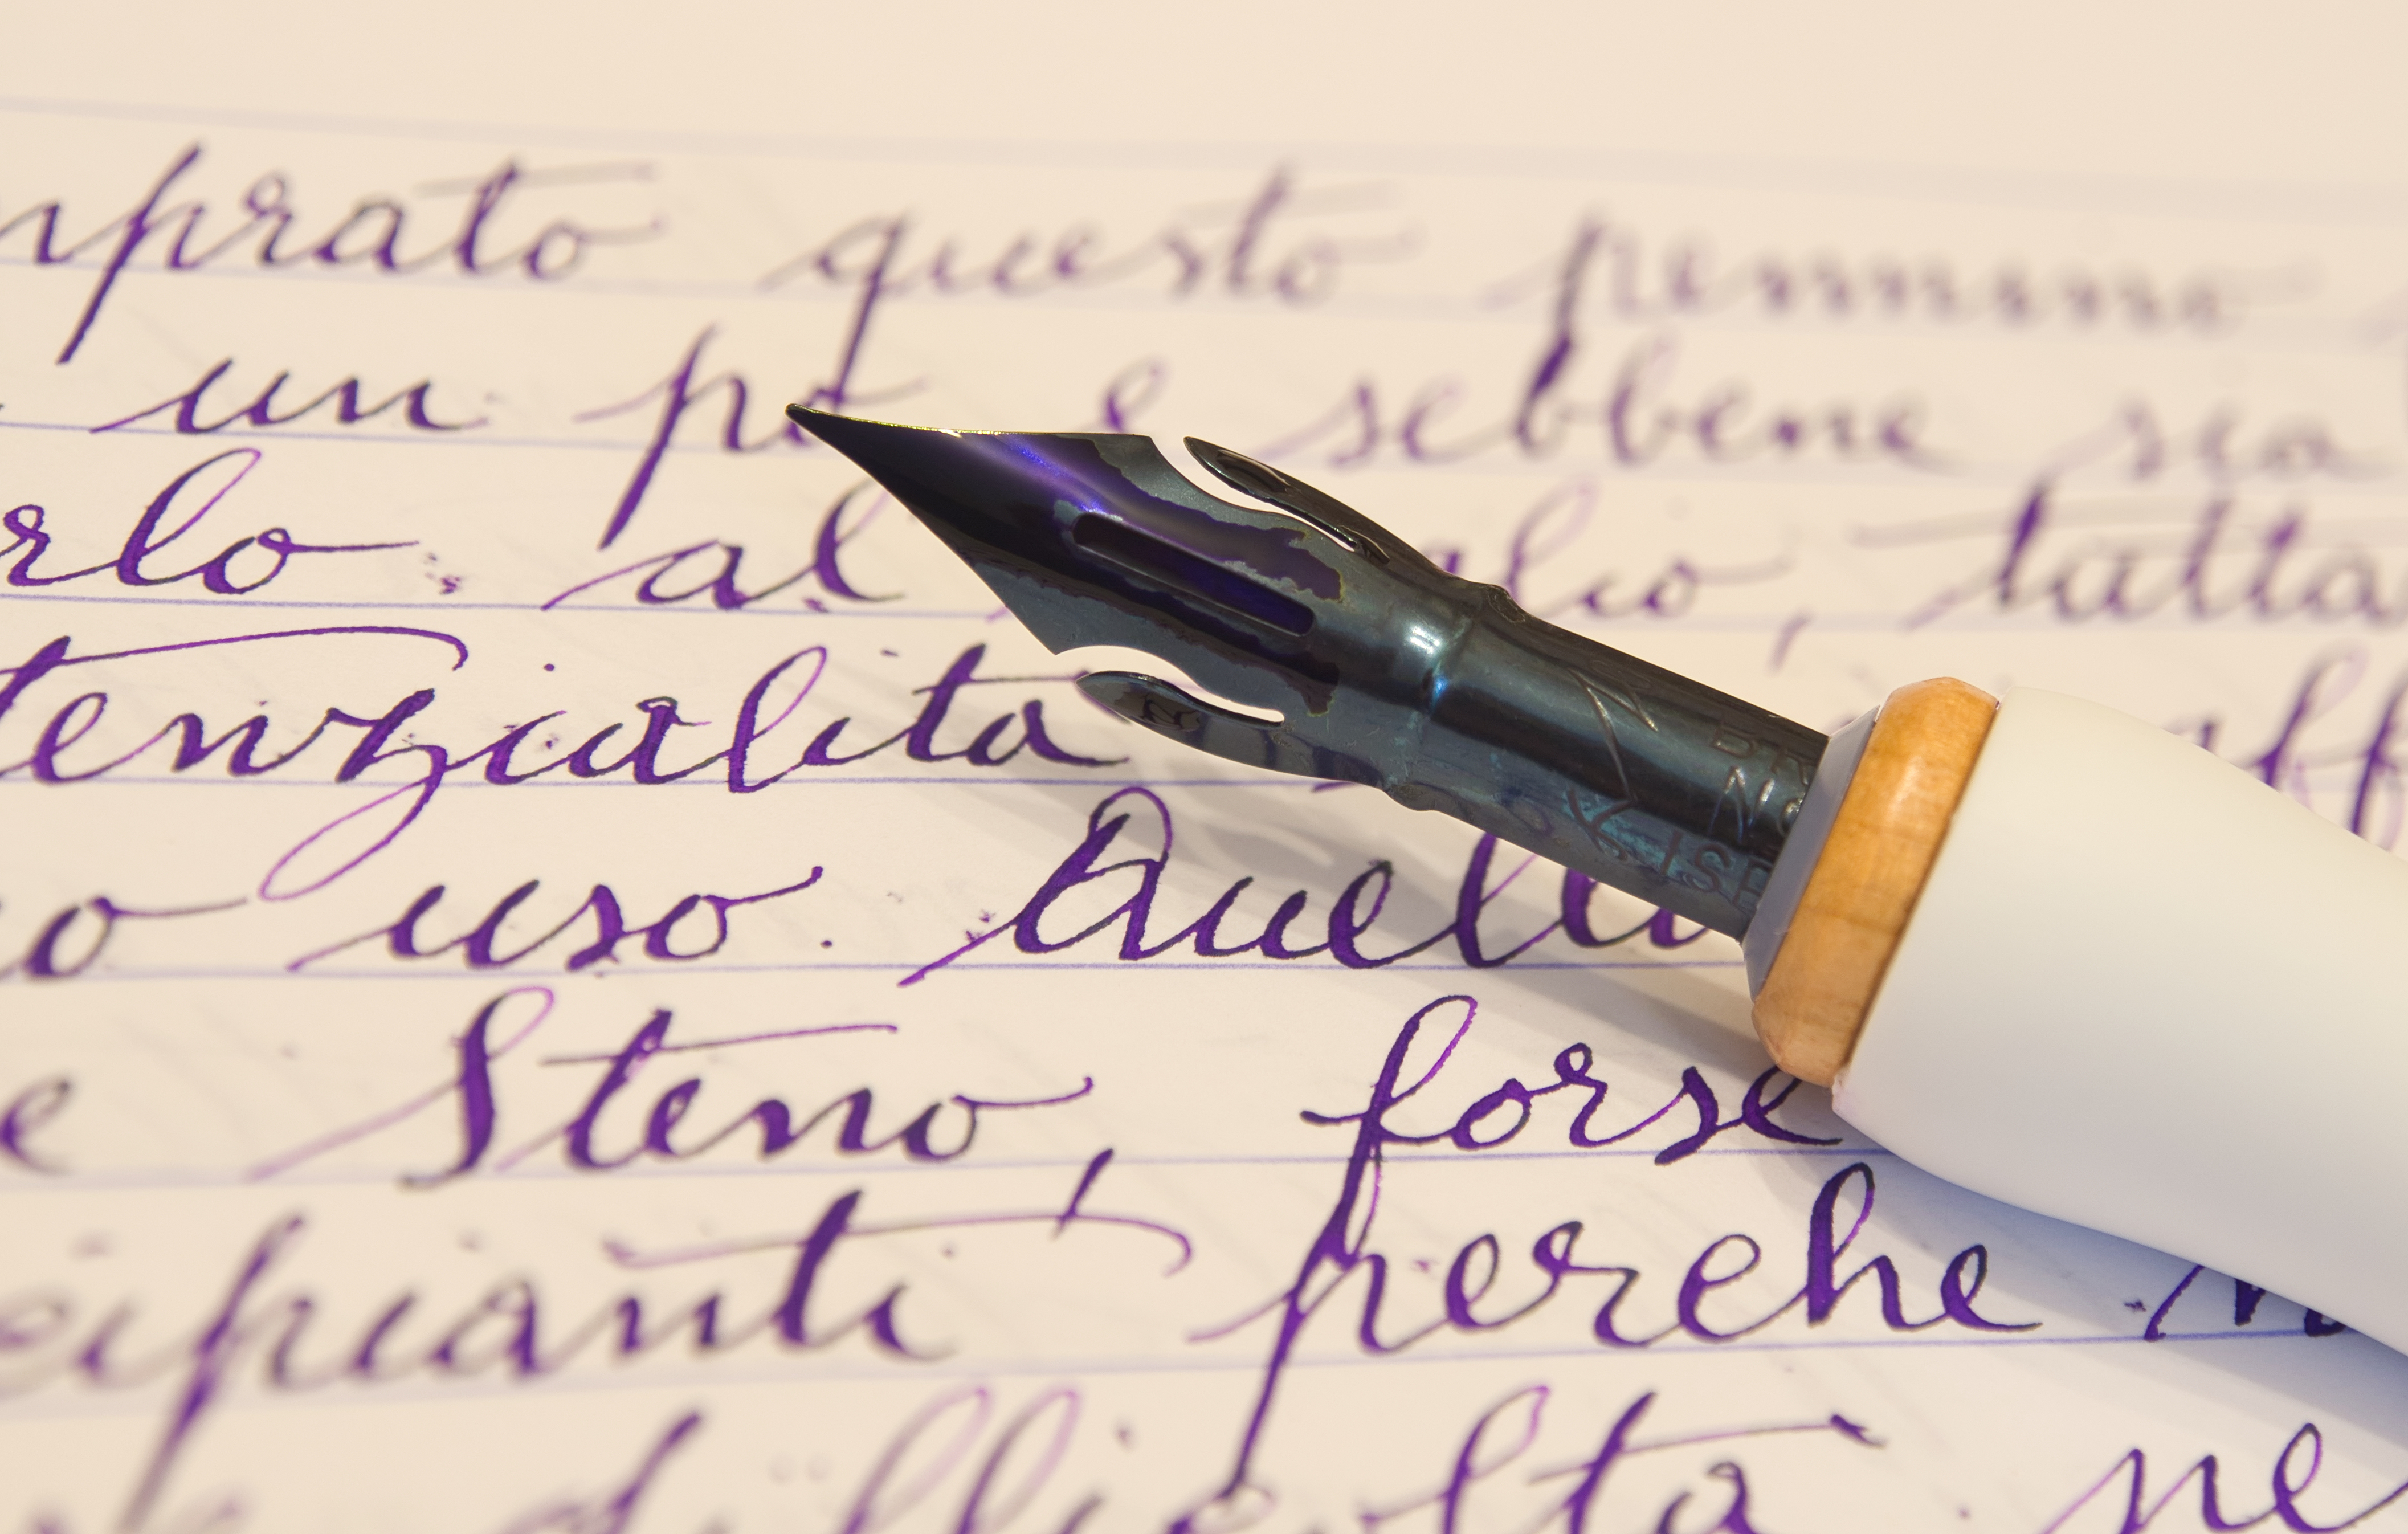 mprato questo pennino
un po e sebbene sia
rlo al glio, tutta
tenzialita
o uso. Quell
e Steno, forse
cipianti perche
difficolta ne